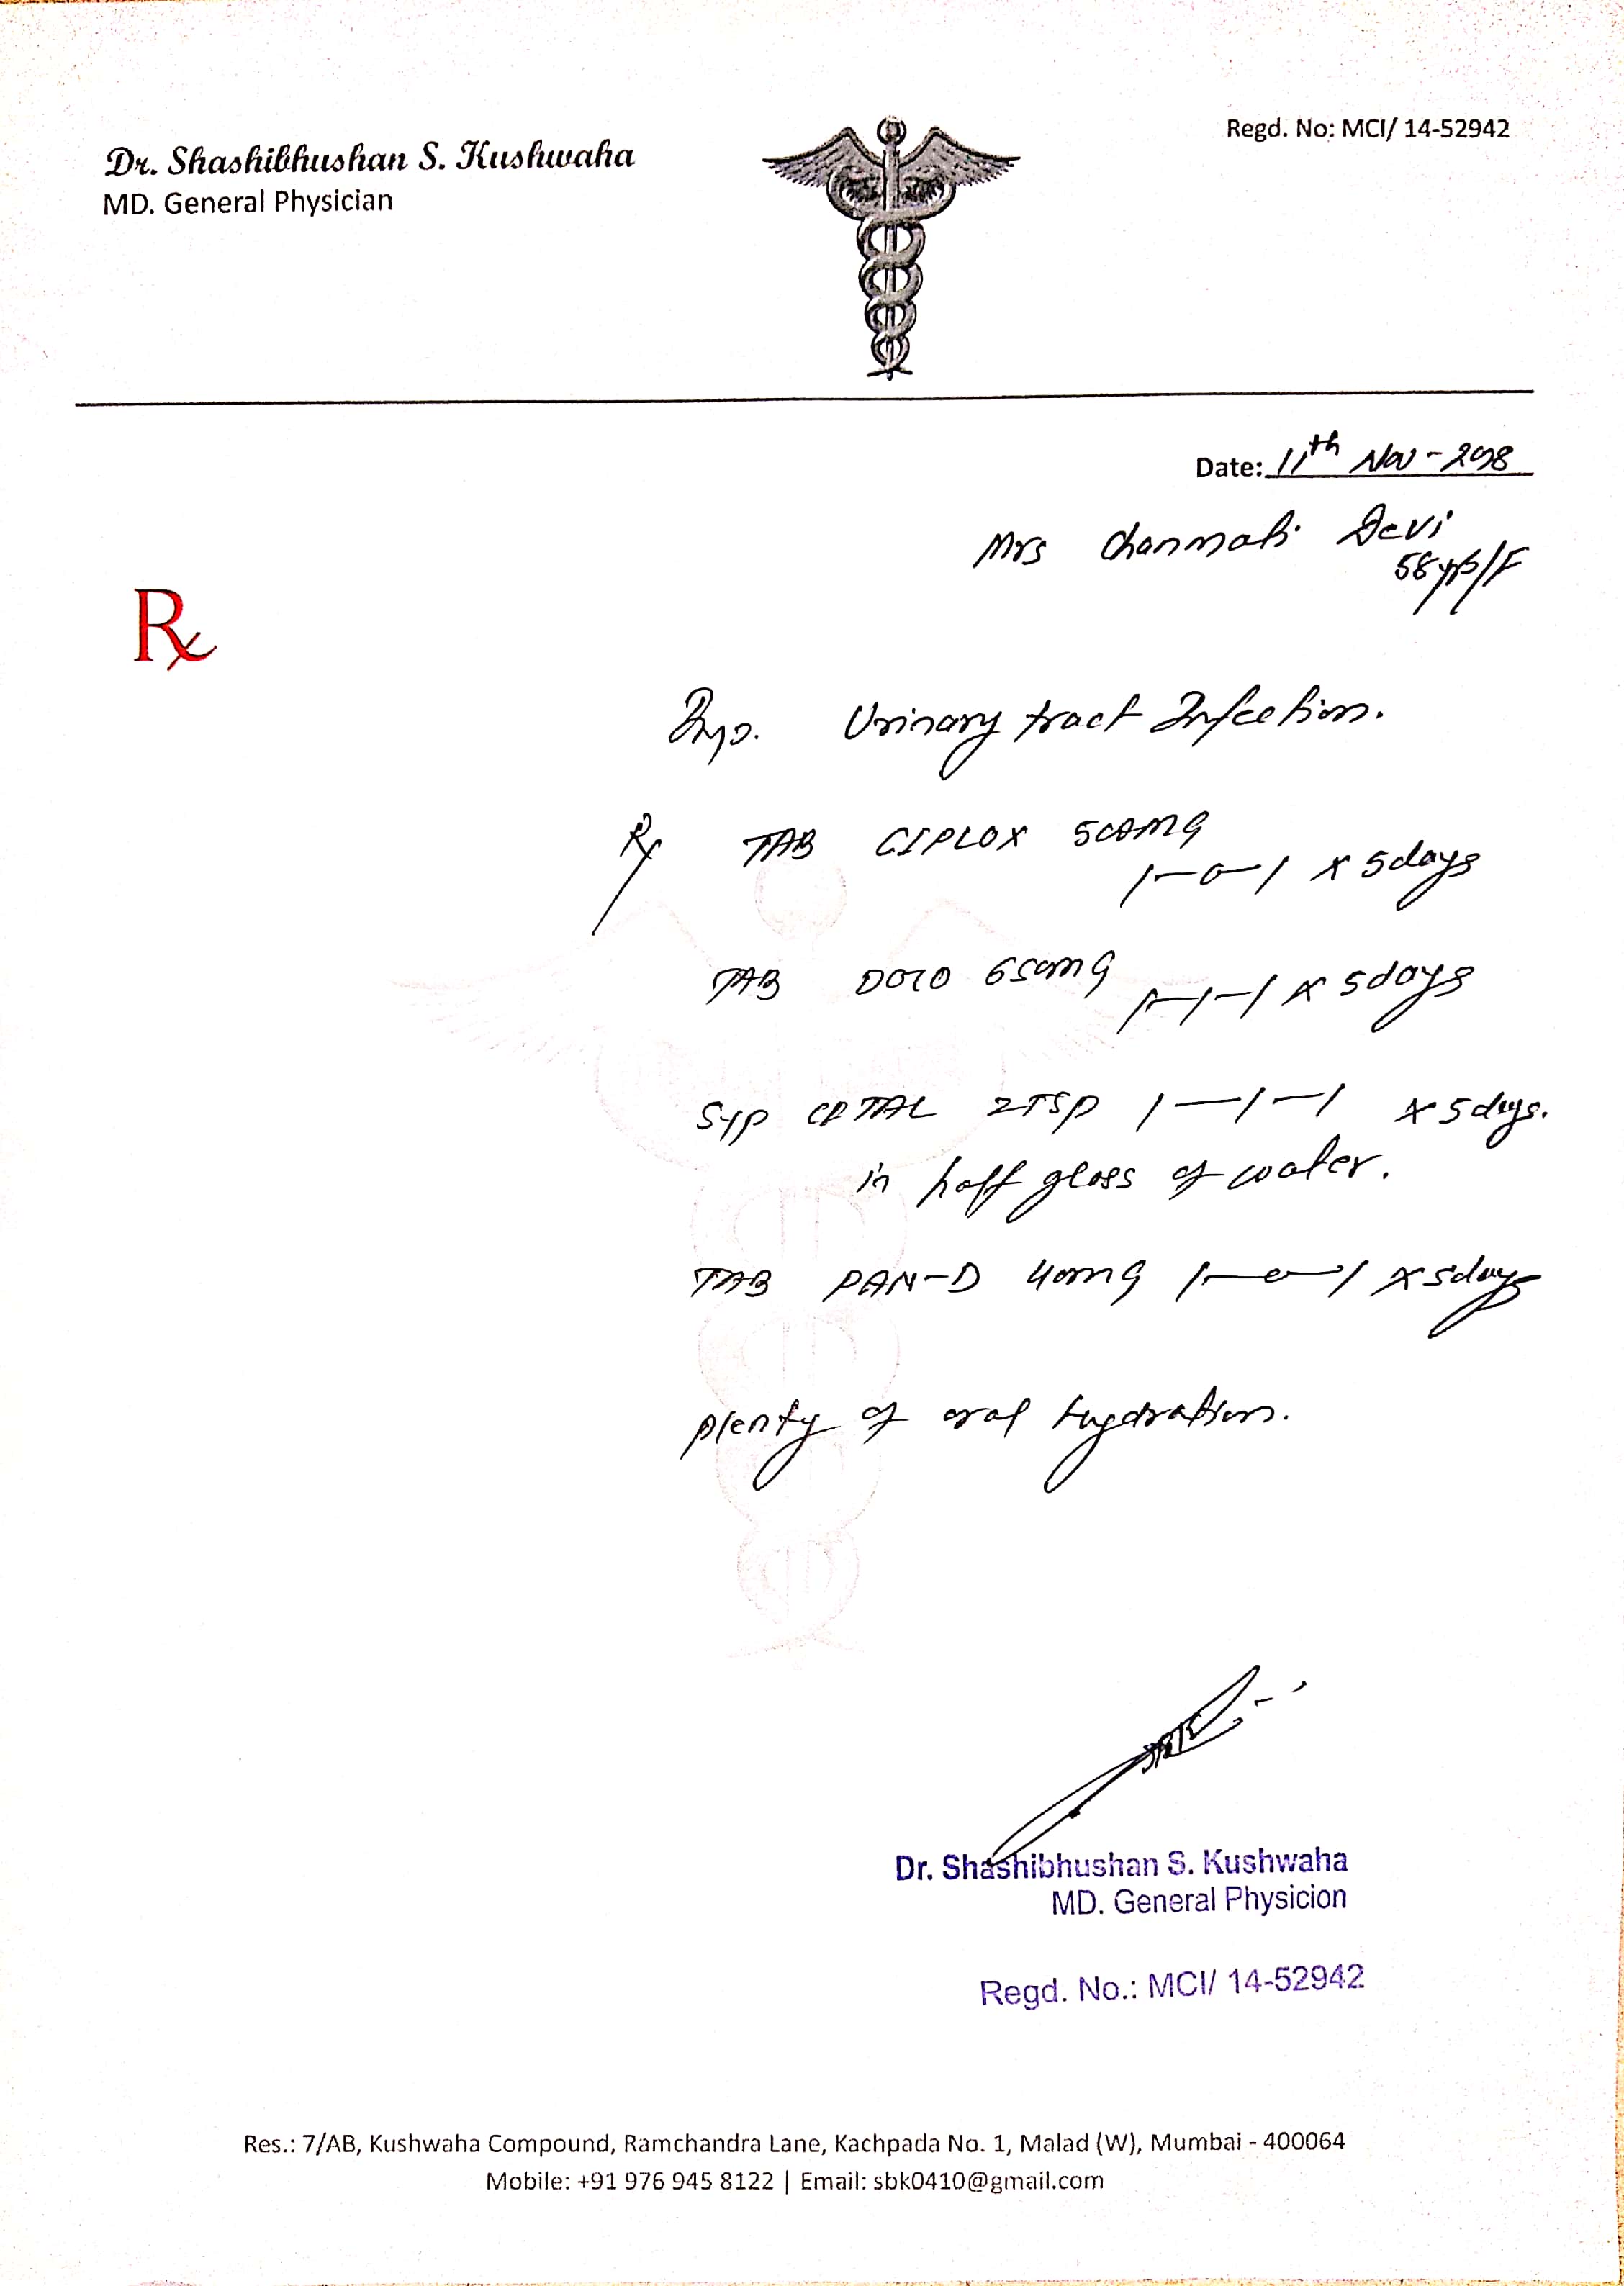 Dr. Shashibhushan S. Kushwaha
MD. General Physician
Regd. No: MCI/ 14-52942
Date: 11th Nov - 2018
Mrs Chanmati Devi
58 yrs/F
Rx
Urinary tract Infection.
Rx TAB CIPLOX 500mg
1-0-1 x 5days
TAB DOLO 650mg
1-1-1 x 5days
Syp 2TSP 1-1-1 x 5days.
in half glass of water.
TAB PAN-D 40mg 1-0-1 x 5days
plenty of oral hydration.
Dr. Shashibhushan S. Kushwaha
MD. General Physicion
Regd. No.: MCI/ 14-52942
Res.: 7/AB, Kushwaha Compound, Ramchandra Lane, Kachpada No. 1, Malad (W), Mumbai - 400064
Mobile: +91 976 945 8122 | Email: sbk0410@gmail.com